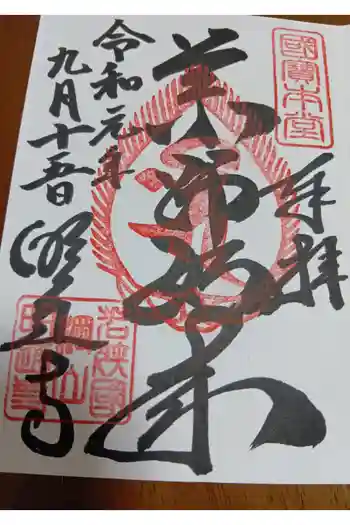 國寶本堂
奉拝
薬師如来
令和元年
九月十五日
明通寺
若狭國
棡山
明通寺